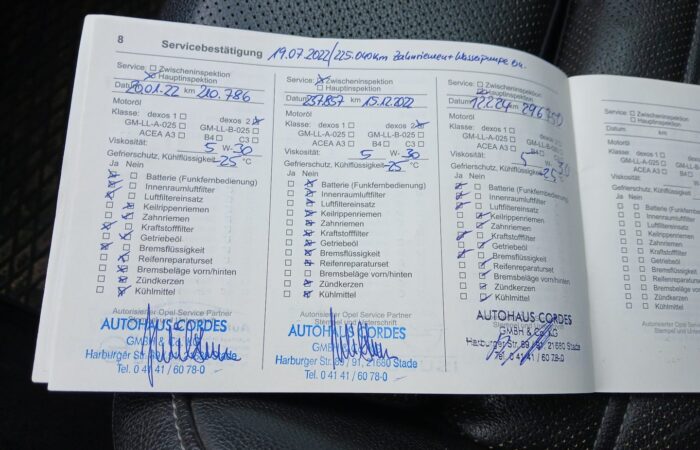 8
Servicebestätigung 19.07.2022/225.040km Zahnriemen+Wasserpumpe en.
Service: Zwischeninspektion
Hauptinspektion
Datum 20.01.22 km 210.786
Motoröl
Klasse: dexos 1 dexos 2
GM-LL-A-025 GM-LL-B-025
ACEA A3 B4 C3
Viskosität: 5 W-30
Gefrierschutz, Kühlflüssigkeit -25 °C
Ja Nein
Batterie (Funkfernbedienung)
Innenraumluftfilter
Luftfiltereinsatz
Keilrippenriemen
Zahnriemen
Kraftstofffilter
Getriebeöl
Bremsflüssigkeit
Reifenreparaturset
Bremsbeläge vorn/hinten
Zündkerzen
Kühlmittel
Autorisierter Opel Service Partner
AUTOHAUS CORDES
GMBH & Co. KG
Harburger Str. Stade
Tel. 0 41 41 / 60 78-0
Service: Zwischeninspektion
Hauptinspektion
Datum 237.857 km 15.12.2022
Motoröl
Klasse: dexos 1 dexos 2
GM-LL-A-025 GM-LL-B-025
ACEA A3 B4 C3
Viskosität: 5 W-30
Gefrierschutz, Kühlflüssigkeit -25 °C
Ja Nein
Batterie (Funkfernbedienung)
Innenraumluftfilter
Luftfiltereinsatz
Keilrippenriemen
Zahnriemen
Kraftstofffilter
Getriebeöl
Bremsflüssigkeit
Reifenreparaturset
Bremsbeläge vorn/hinten
Zündkerzen
Kühlmittel
Autorisierter Opel Service Partner
Stempel und Unterschrift
AUTOHAUS CORDES
GMBH & Co. KG
Harburger Str. 89 / 91, 21680 Stade
Tel. 0 41 41 / 60 78-0
Service: Zwischeninspektion
Hauptinspektion
Datum 12.2.24 km
Motoröl
Klasse: dexos 1 dexos 2
GM-LL-A-025 GM-LL-B-025
ACEA A3 B4 C3
Viskosität: 5 W-30
Gefrierschutz, Kühlflüssigkeit -25 °C
Ja Nein
Batterie (Funkfernbedienung)
Innenraumluftfilter
Luftfiltereinsatz
Keilrippenriemen
Zahnriemen
Kraftstofffilter
Getriebeöl
Bremsflüssigkeit
Reifenreparaturset
Bremsbeläge vorn/hinten
Zündkerzen
Kühlmittel
Autorisierter Opel Service Partner
AUTOHAUS CORDES
GMBH & Co. KG
Harburger Str. 89 / 91, 21680 Stade
Tel. 0 41 41 / 60 78-0
Service: Zwischeninspektion
Hauptinspektion
Datum: km
Motoröl
Klasse: dexos 1
GM-LL-A-025
ACEA A3
Viskosität:
Gefrierschutz, Kühlflüssigkeit
Ja Nein
Batterie
Innenraumluftfilter
Luftfiltereinsatz
Keilrippenriemen
Zahnriemen
Kraftstofffilter
Getriebeöl
Bremsflüssigkeit
Reifenreparaturset
Bremsbeläge
Zündkerzen
Kühlmittel
Autorisierter Opel
Stempel und